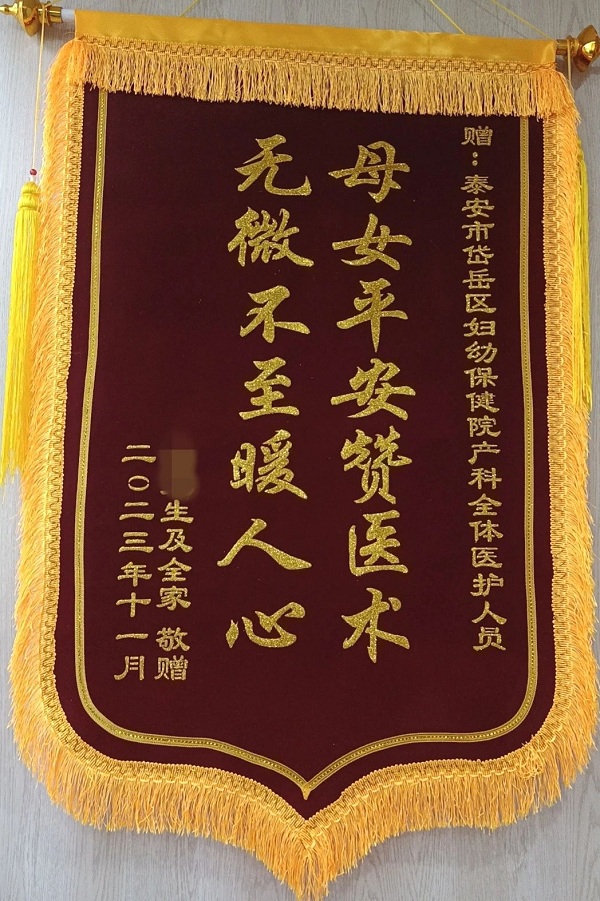 赠：泰安市岱岳区妇幼保健院产科全体医护人员
母女平安赞医术
无微不至暖人心
生及全家 敬赠
二〇二三年十一月